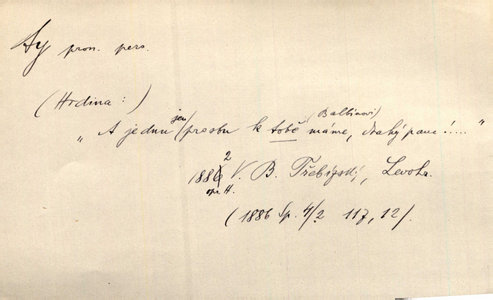 Ty pron. pers.
(Hrdina:)
„A jednu jen prosbu k tobě (Balbínovi) máme, drahý pane!...."
1882 V. B. Třebízský, Levohr.
opr. H.
(1886 Sp. 4/2 117, 12).